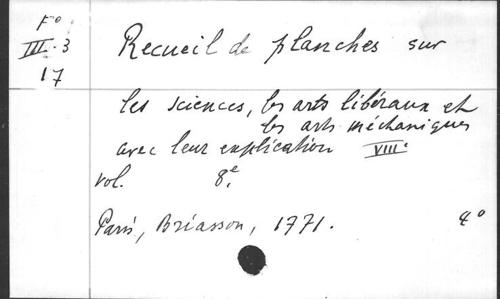 F°
III. 3
17
Recueil de planches sur
les sciences, les arts libéraux et
les arts méchaniques
avec leur explication VIII.
vol. 8e.
Paris, Briasson, 1771. 4°